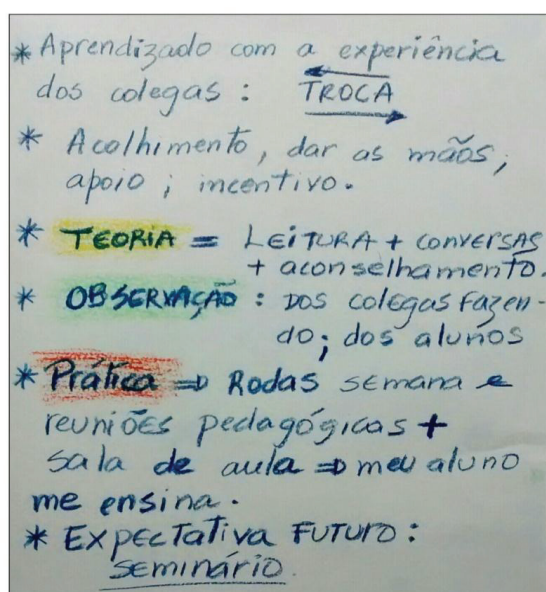 * Aprendizado com a experiência
dos colegas : TROCA
* Acolhimento, dar as mãos,
apoio ; incentivo.
* TEORIA = LEiTURA + conversas
+ aconselhamento.
* OBSERVAÇÃO : DOS colegas Fazen-
do ; dos alunos
* Prática ⇒ Rodas semana e
reuniões pedagógicas +
sala de aula ⇒ meu aluno
me ensina.
* Expectativa FUTURO :
SEMINÁRIO.